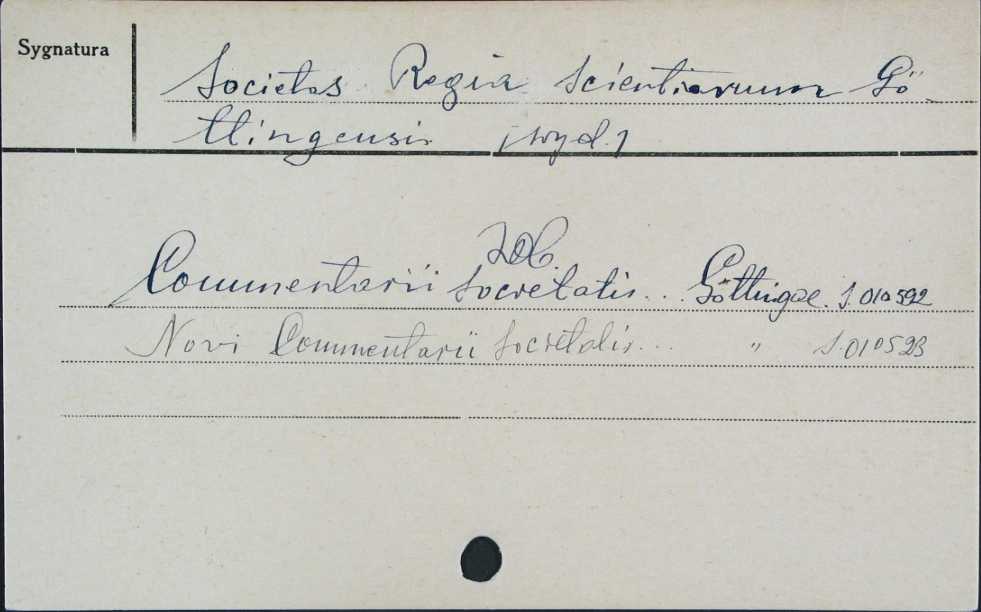 Sygnatura
Societas Regia Scientiarum Gö-
ttingensis (wyd.)
Zob.
Commentarii Societatis... Göttingae. S.010592
Novi Commentarii Societatis... " S.010523